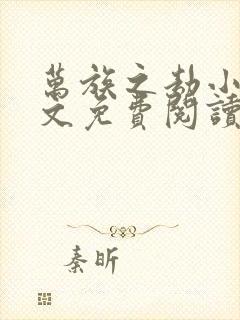 萬族之劫小
文免費閱讀
秦昕